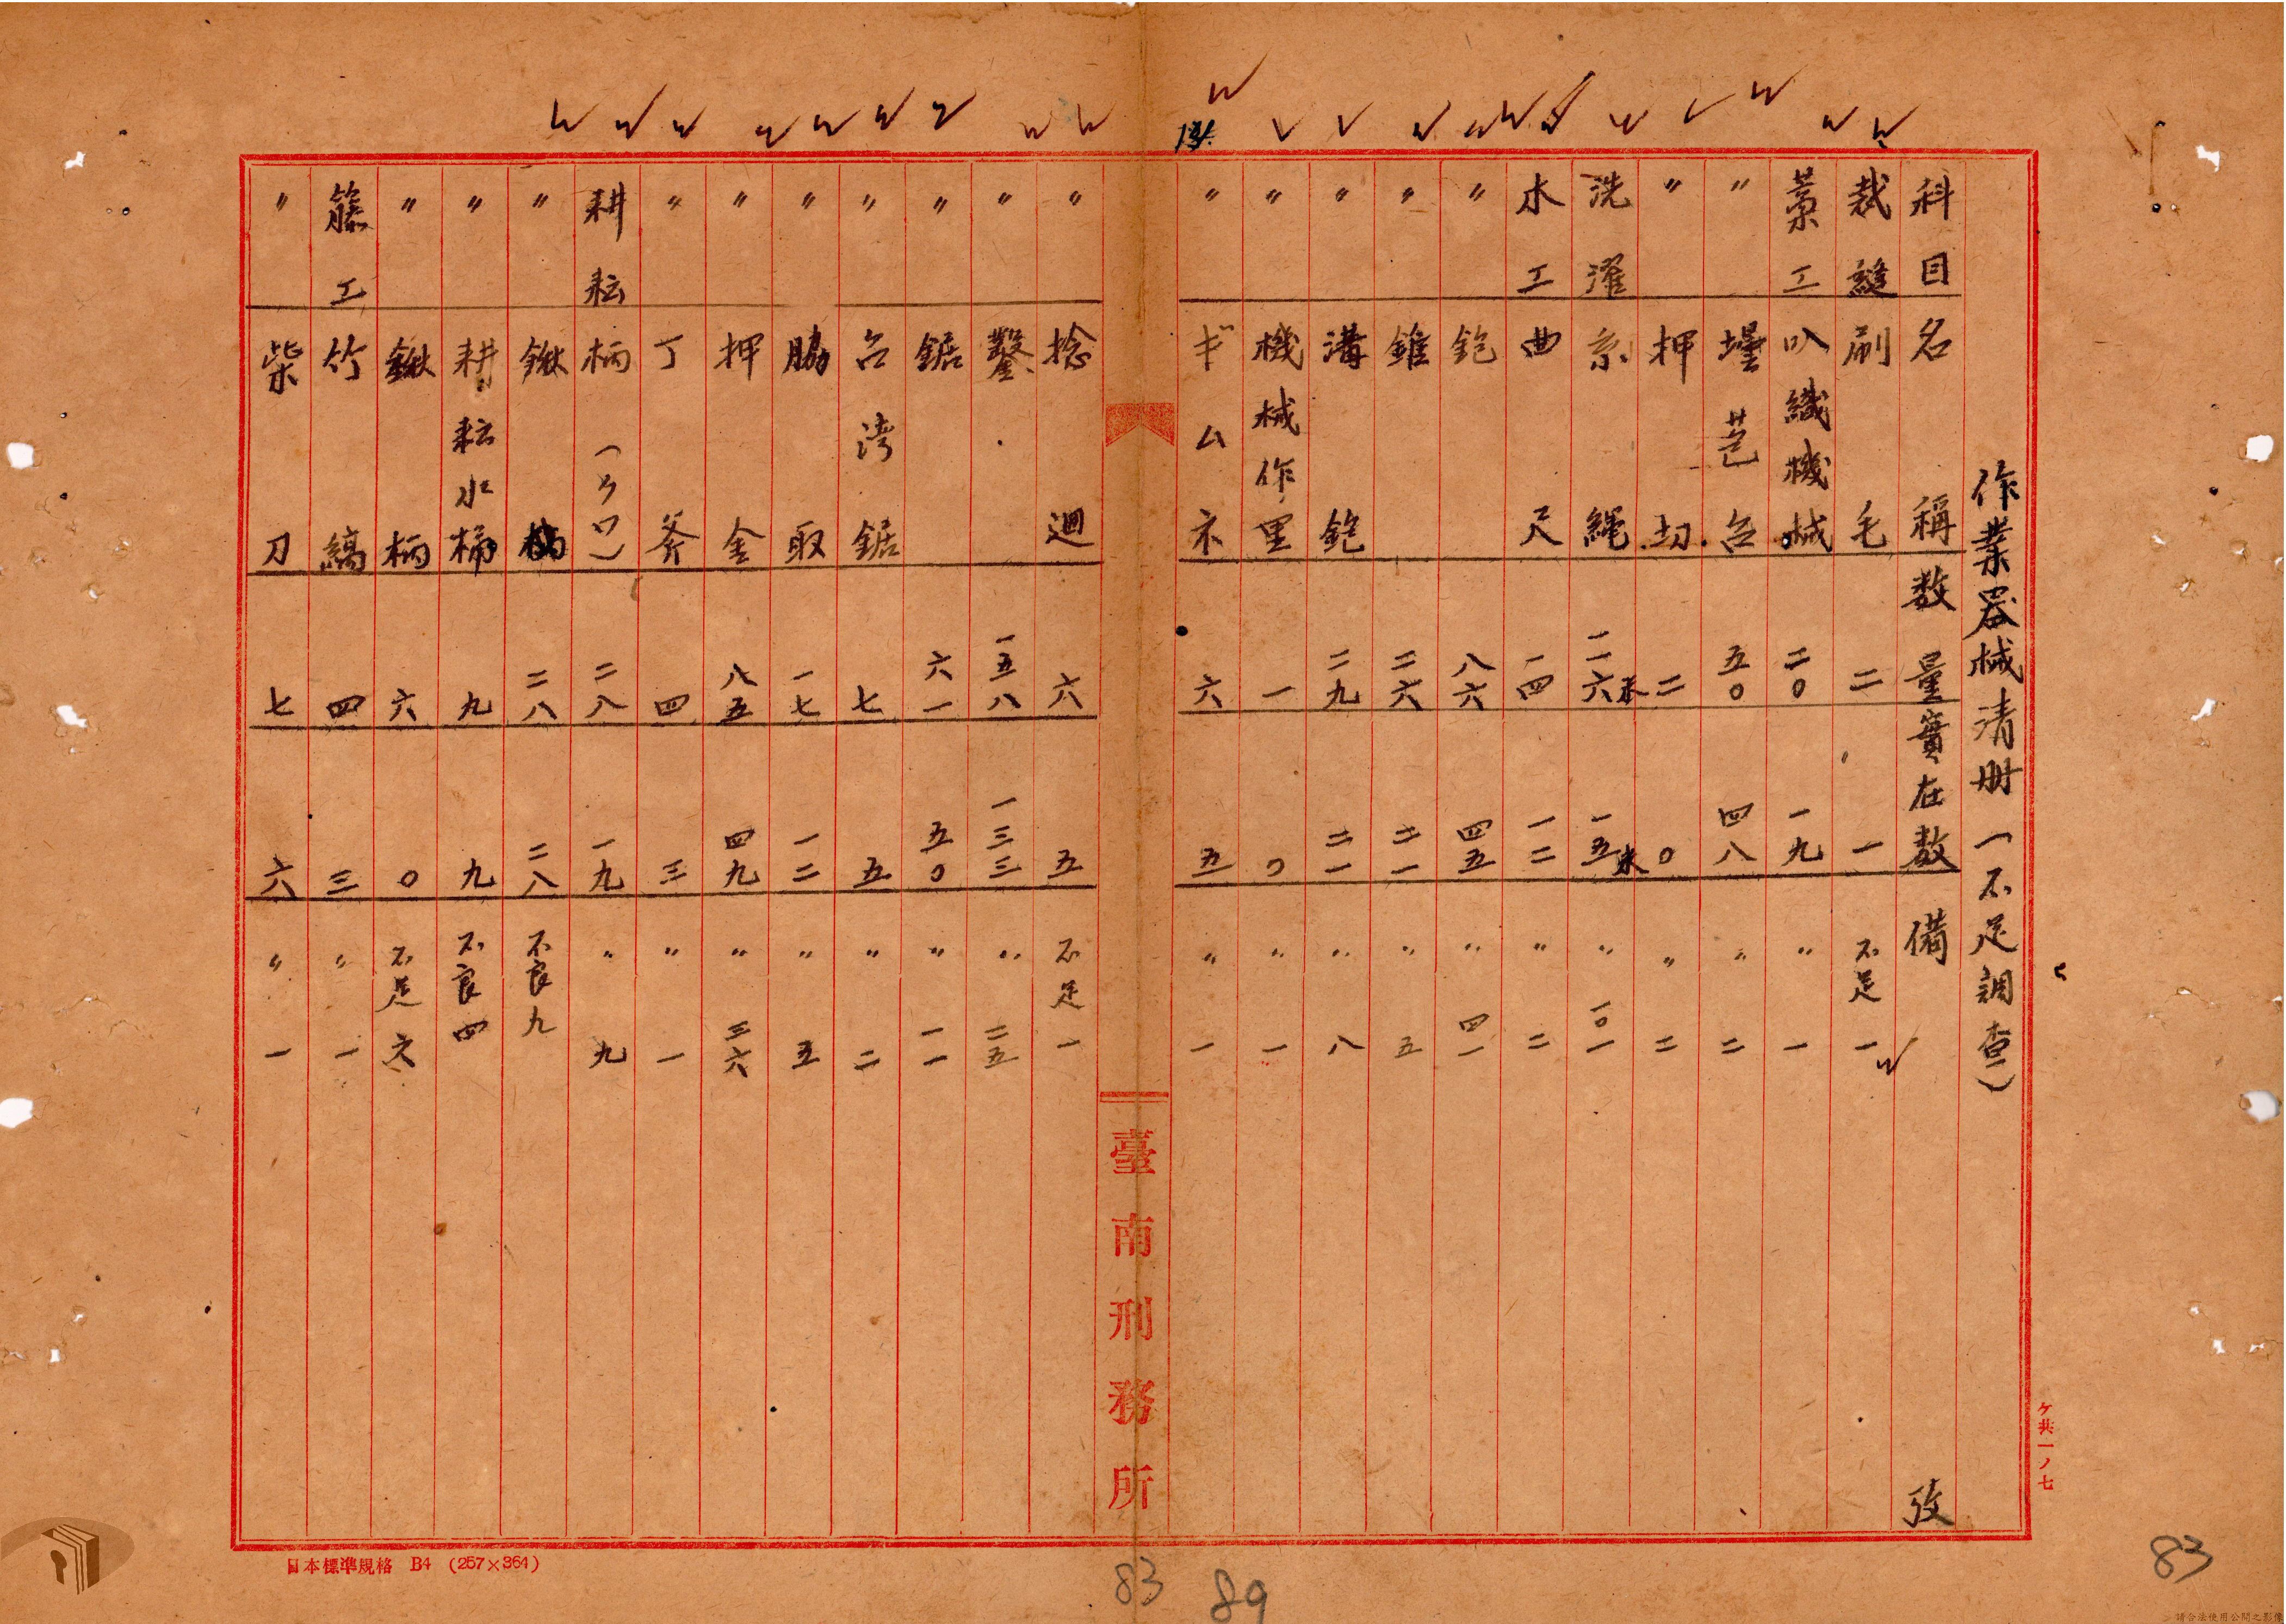 作業器械清册(不足調查)
科目 名稱 数量 實在数 備攷
裁縫 刷毛 二 一 不足 一
藁工 叺織機械 二〇 一九 〃 一
〃 台 五〇 四八 〃 二
〃 押切 二 〇 〃 二
洗濯 糸繩 一一六米 一五米 〃 一〇一
木工 曲尺 一四 一二 〃 二
〃 鉋 八六 四五 〃 四一
〃 錐 二六 二一 〃 五
〃 溝鉋 二九 二一 〃 八
〃 機械作里 一 〇 〃 一
〃 ギムネ 六 五 〃 一
〃 捻廻 六 五 不足 一
〃 鑿 一五八 一三三 〃 二五
〃 鋸 六一 五〇 〃 一一
〃 台湾鋸 七 五 〃 二
〃 脇取 一七 一二 〃 五
〃 押金 八五 四九 〃 三六
〃 丁斧 四 三 〃 一
耕耘 柄(クワ) 二八 一九 〃 九
〃 鍬 二八 二八 不良 九
〃 耕耘水桶 九 九 不良 四
〃 鍬柄 六 〇 不足 六
籐工 竹縞 四 三 〃 一
〃 柴刀 七 六 〃 一
臺南刑務所
ケ共一ノ七
日本標準規格 B4 (257×364)
83
89
83
請合法使用公開之影像